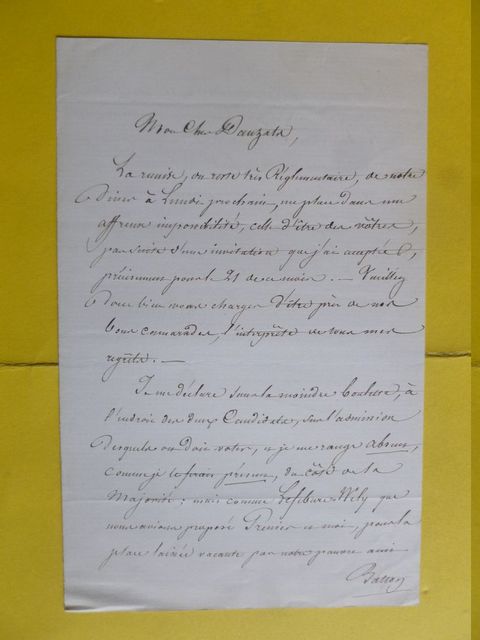 Mon Cher Dauzats,
La remise, du reste très Réglementaire, de notre
Diner à Lundi prochain, me place dans une
affreuse impossibilité, celle d'être des vôtres,
par suite d'une invitation que j'ai acceptée
précisément pour le 21 de ce mois. — Veuillez
Donc bien vous charger d'être près de nos
bons camarades, l'interprète de tous mes
regrets. —
Je me déclare sans la moindre Couleur, à
l'endroit des deux Candidats, sur l'admission
Desquels on doit voter, & je me range absent,
comme je le ferais présent, du côté de la
Majorité ; mais comme Lefébure-Wely que
nous avions proposé Prenier et moi, pour la
place laissée vacante par notre pauvre ami